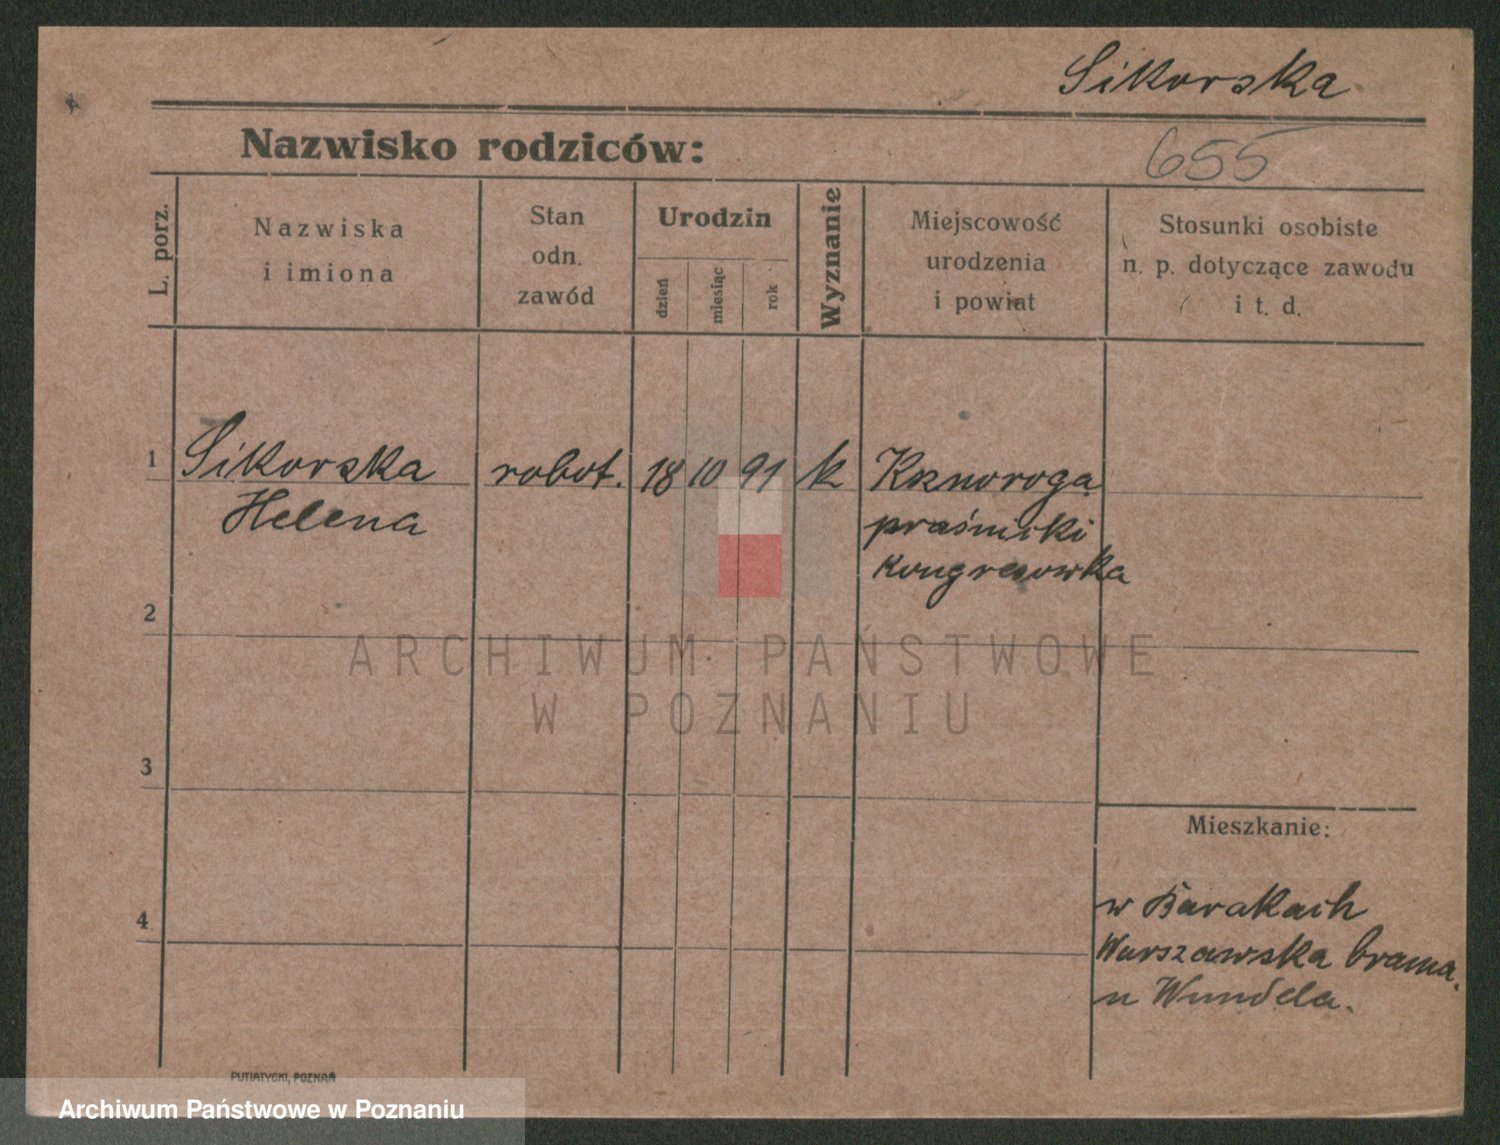 Sikorska
Nazwisko rodziców:
655
L. porz.
Nazwiska
i imiona
Stan
odn.
zawód
Urodzin
dzień
miesiąc
rok
Wyznanie
Miejscowość
urodzenia
i powiat
Stosunki osobiste
n. p. dotyczące zawodu
i t. d.
1 Sikorska robot. 18 10 91 k
Helena
Kongresowka
2
ARCHIWUM PAŃSTWOWE
W POZNANIU
3
Mieszkanie:
4
w Barakach
Warszawska brama.
u Wundela.
PUTIATYCKI, POZNAŃ
Archiwum Państwowe w Poznaniu